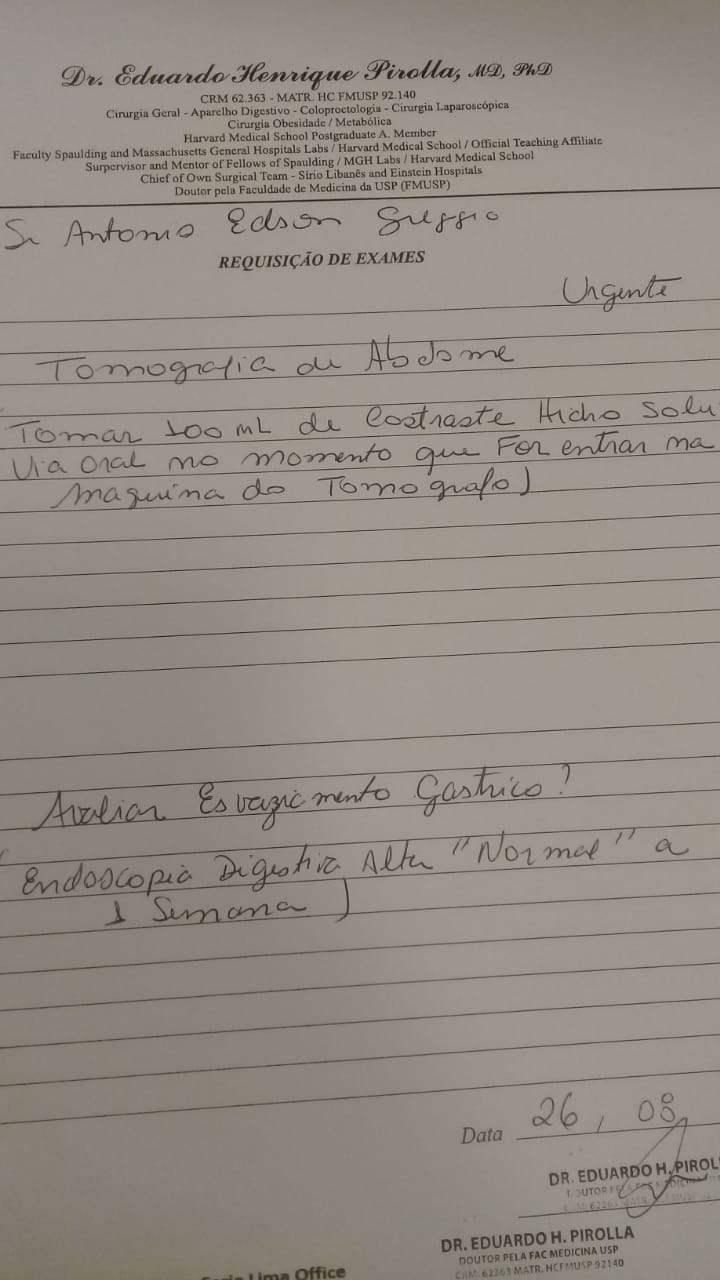 Dr. Eduardo Henrique Pirolla, MD, PhD
CRM 62.363 - MATR. HC FMUSP 92.140
Cirurgia Geral - Aparelho Digestivo - Coloproctologia - Cirurgia Laparoscópica
Cirurgia Obesidade / Metabólica
Harvard Medical School Postgraduate A. Member
Faculty Spaulding and Massachusetts General Hospitals Labs / Harvard Medical School / Official Teaching Affiliate
Surpervisor and Mentor of Fellows of Spaulding / MGH Labs / Harvard Medical School
Chief of Own Surgical Team - Sírio Libanês and Einstein Hospitals
Doutor pela Faculdade de Medicina da USP (FMUSP)
Sr Antonio Edson
REQUISIÇÃO DE EXAMES
Urgente
Tomografia de Abdome
Tomar 100 mL de Hidro Solu
Via Oral no momento que For entrar na
maquina do Tomografo)
Avaliar Esvaziamento Gastrico?
Endoscopia Digestiva Alta "Normal" a
1 Semana)
Data 26, 08
DR. EDUARDO H. PIROL
DR. EDUARDO H. PIROLLA
DOUTOR PELA FAC MEDICINA USP
CRM: 62363 MATR. HCFMUSP 92140
Lima Office